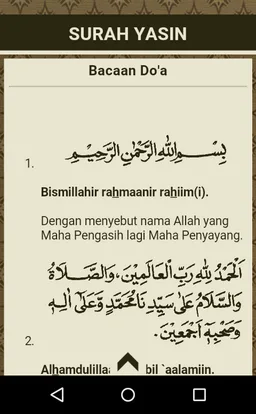 SURAH YASIN
Bacaan Do'a
بِسْــمِ اللهِ الرَّحْمٰنِ الرَّحِيْمِ
1.
Bismillahir rahmaanir rahiim(i).
Dengan menyebut nama Allah yang
Maha Pengasih lagi Maha Penyayang.
اَلْحَمْدُ لِلّٰهِ رَبِّ الْعَالَمِيْنَ، وَالصَّــلَاةُ
وَالسَّلَامُ عَلٰى سَيِّدِنَا مُحَمَّدٍ وَّعَلٰى اٰلِــهٖ
وَصَحْبِهٖٓ اَجْمَعِيْنَ.
2.
Alhamdulillaa bil `aalamiin.